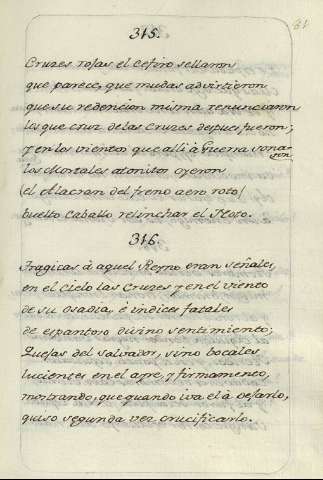 81
315.
Cruzes rojas el Cefiro sellaron
que parece, que mudas advirtieron
que su redencion misma renunciaron
los que cruz de las Cruzes despues fueron;
y en los vientos que alli à Guerra sona-
ron
los Mortales atonitos oyeron
(el Alacran del freno aero roto)
buelto Caballo relinchar el Noto.
316.
Tragicas à aquel Reyno eran señales,
en el Cielo las Cruzes y en el viento
de su osadia, è indices fatales
de espantoso divino sentimiento;
Quejas del Salvador, sino bocales
lucientes en el ayre, y firmamento,
mostrando, que quando iva el à besarlo,
quiso segunda vez crucificarlo.